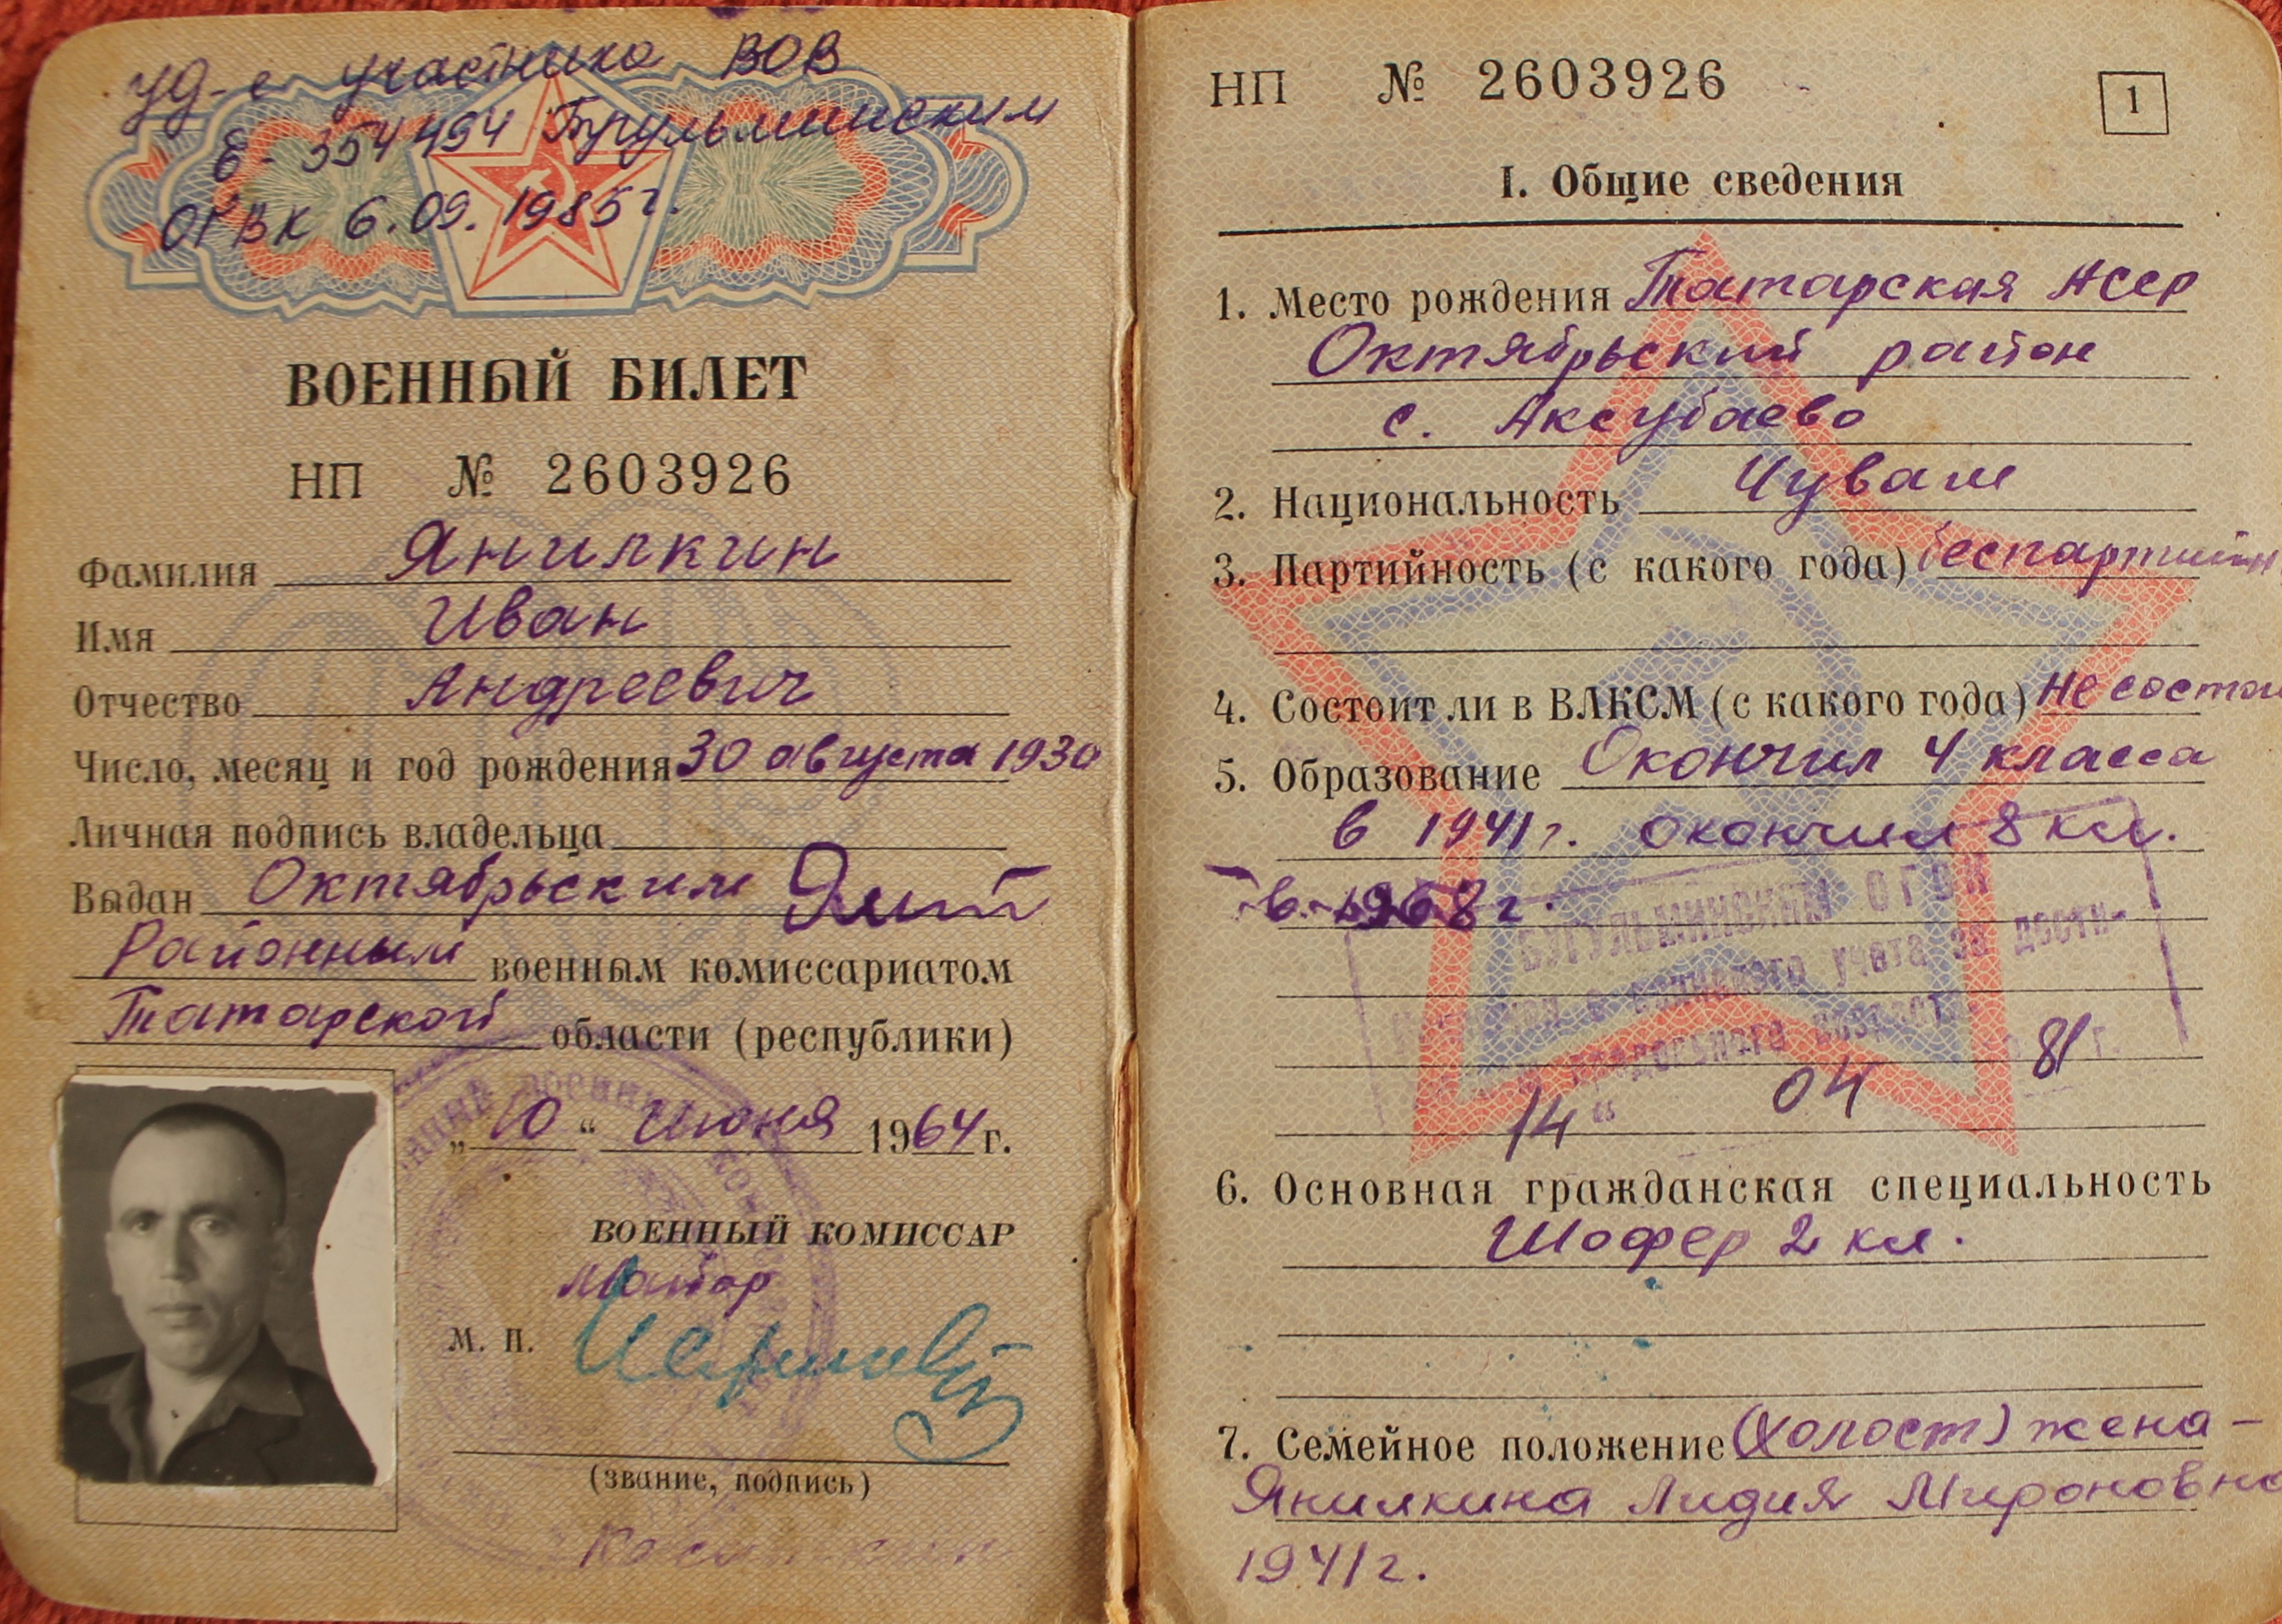 уд-е участника ВОВ
Е-354494 Бугульминским
ОГВК 6.09.1985г.
ВОЕННЫЙ БИЛЕТ
НП № 2603926
Фамилия Янилкин
Имя Иван
Отчество Андреевич
Число, месяц и год рождения 30 августа 1930
Личная подпись владельца
Выдан Октябрьским
Районным военным комиссариатом
Татарской области (республики)
„10“ Июня 1964 г.
ВОЕННЫЙ КОМИССАР
Майор
М. П.
(звание, подпись)
НП № 2603926
1
I. Общие сведения
1. Место рождения Татарская АССР
Октябрьский район
с. Аксубаево
2. Национальность Чуваш
3. Партийность (с какого года) беспартийн
4. Состоит ли в ВЛКСМ (с какого года) Не состои
5. Образование Окончил 4 класса
в 1941г. окончил 8 кл.
в 1968г.
БУГУЛЬМИНСКИМ ОГВК
учета за дости-
предельного возраста
14 “ 04 81 г.
6. Основная гражданская специальность
Шофер 2 кл.
7. Семейное положение (холост) жена –
Янилкина Лидия Мироновна
1941г.